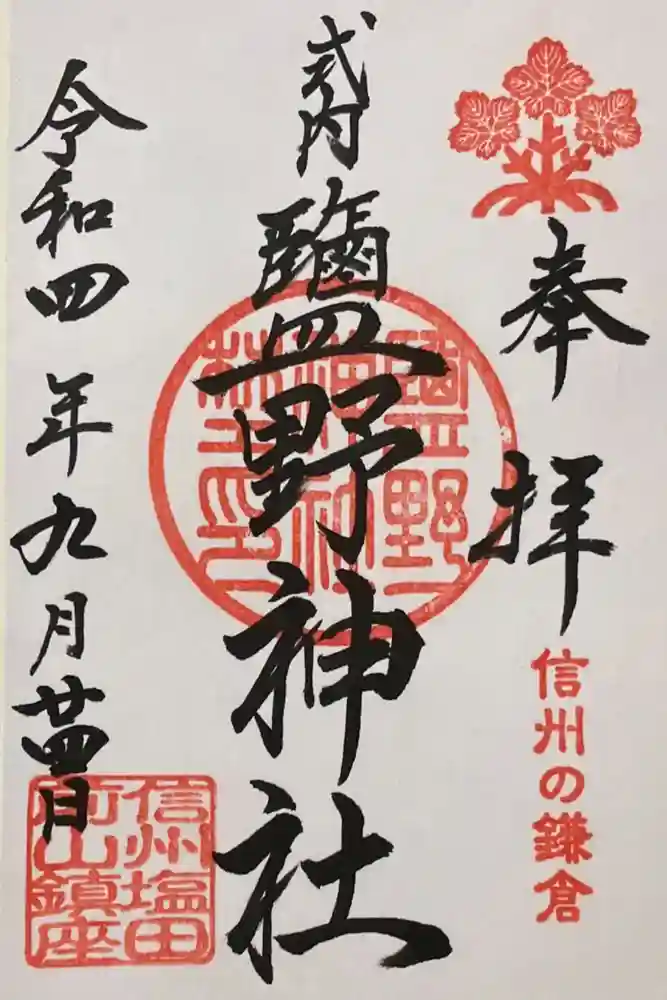 奉拝
信州の鎌倉
式内
鹽野神社
鹽野
神社
璽印
令和四年九月廿四日
信州塩田
前山鎮座